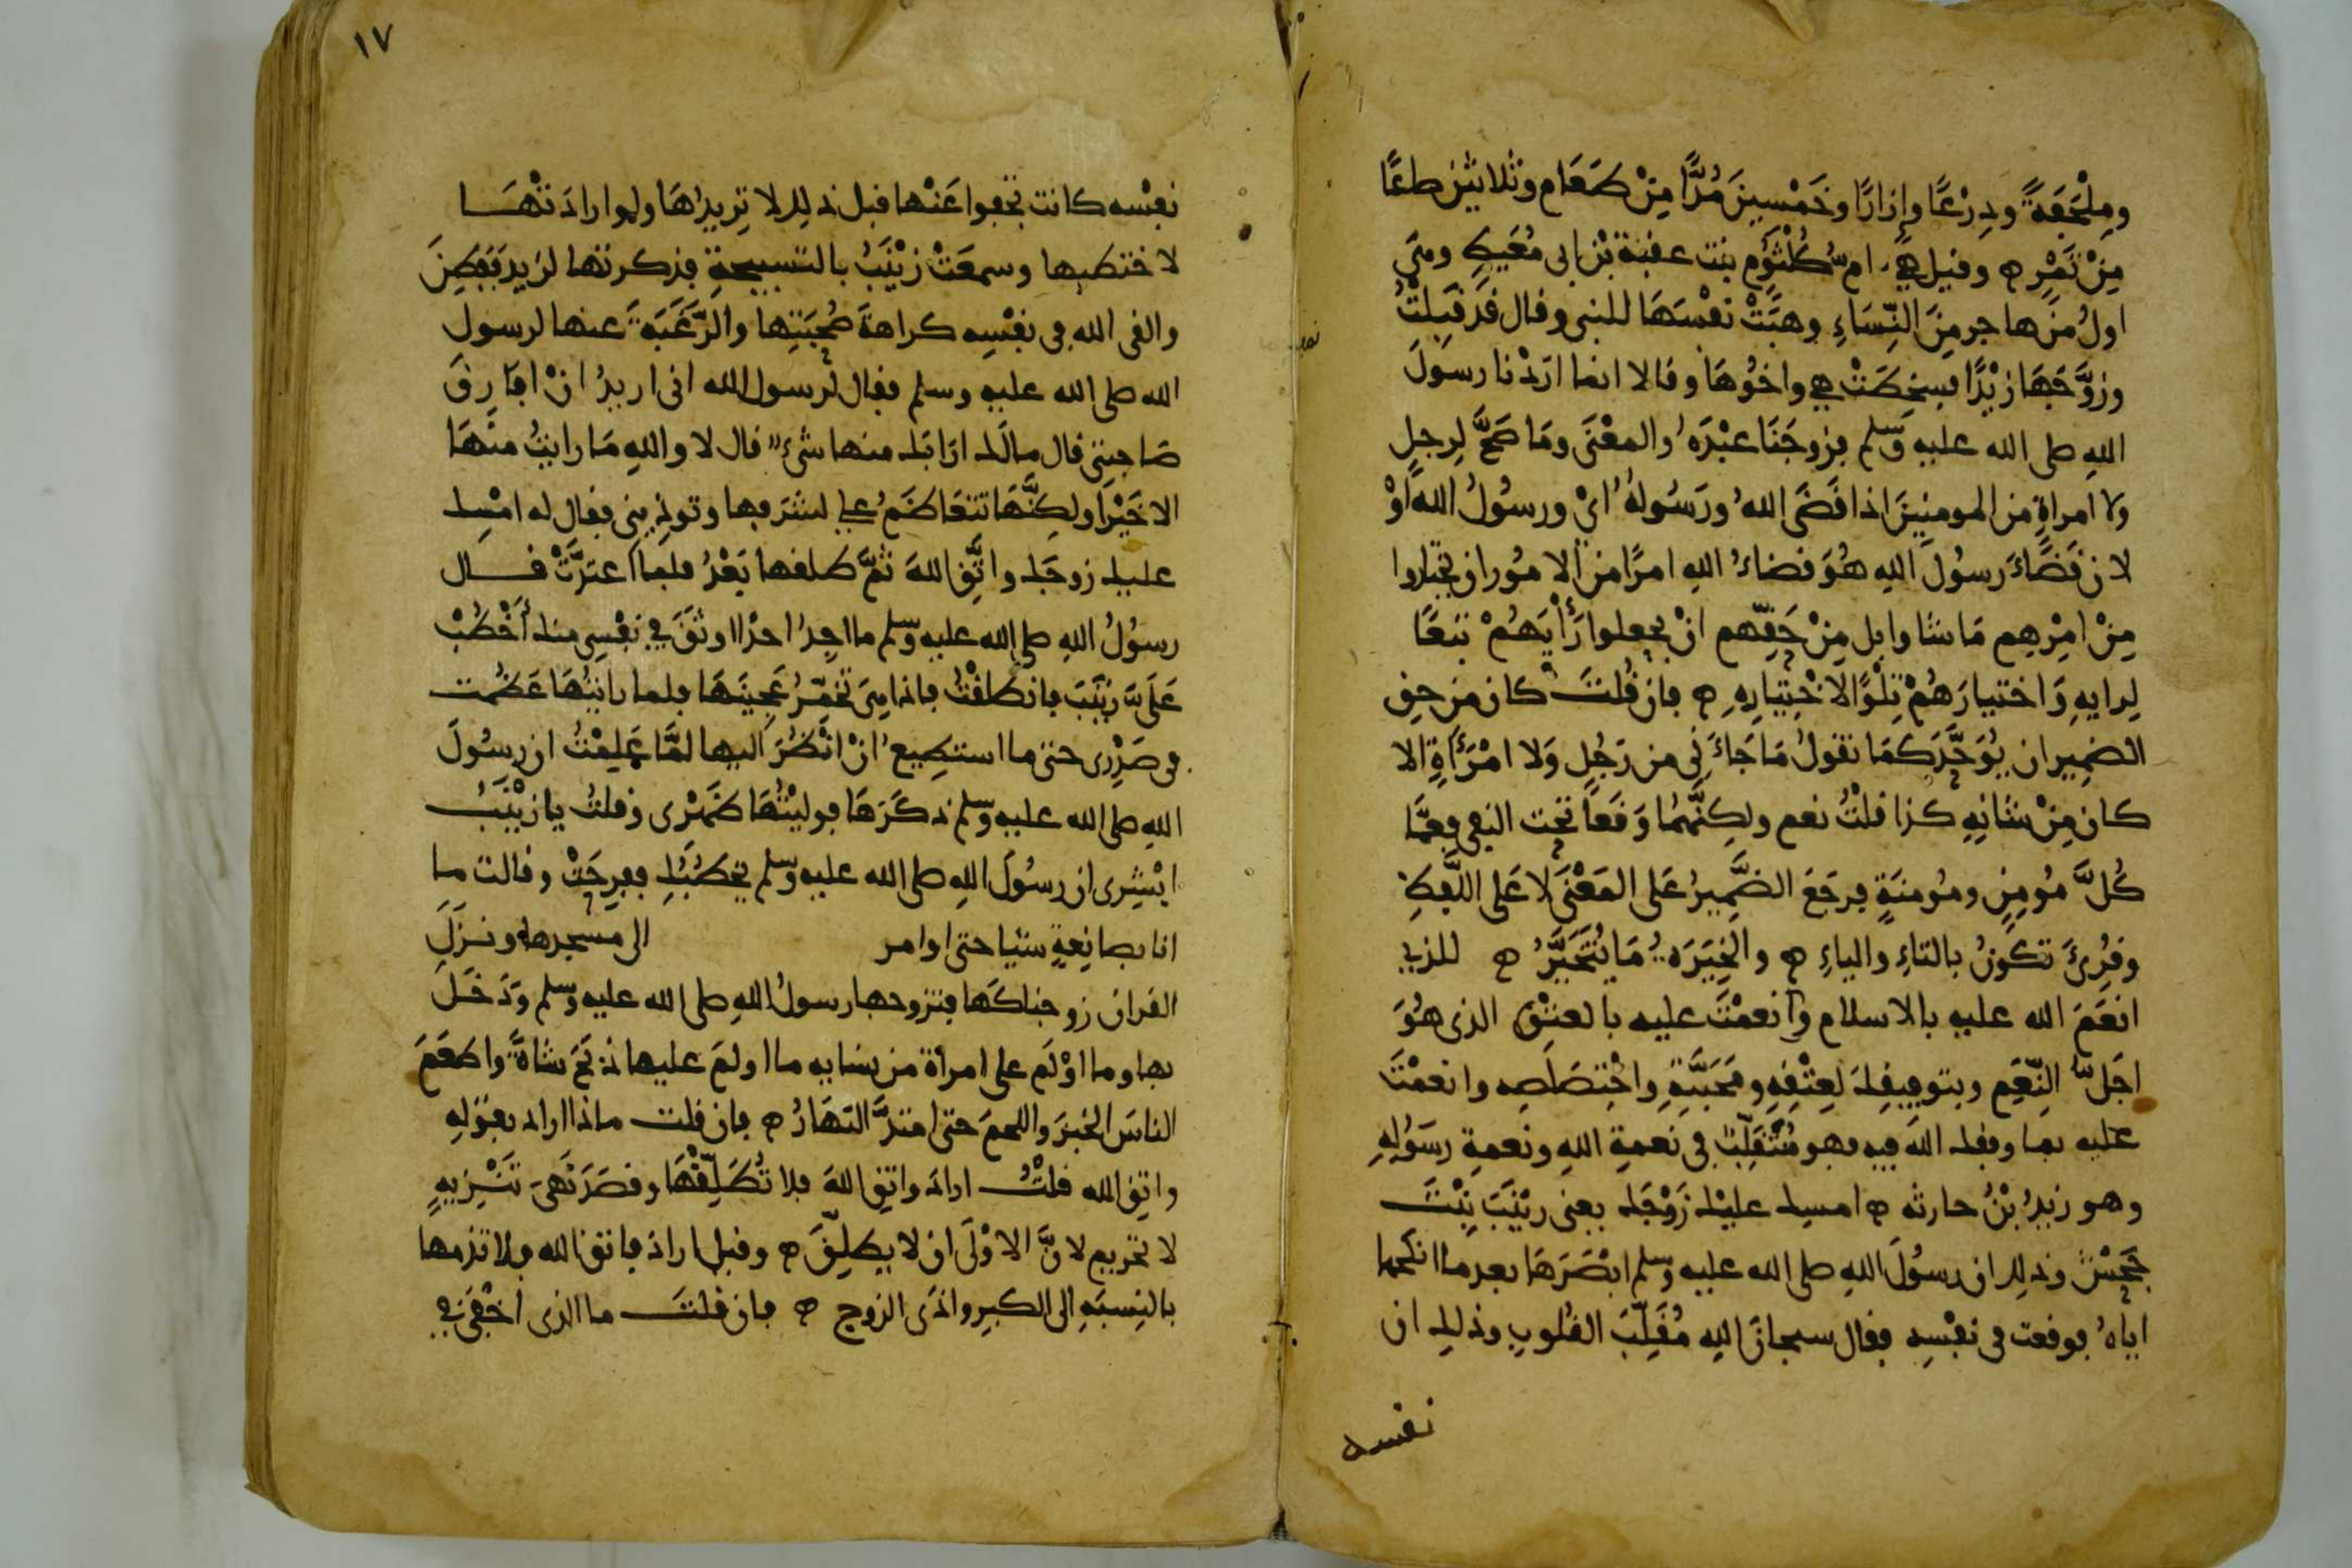 وملحفةً ودرعًا وإزارًا وخمسين مُدًّا مِنْ طَعَام وثلاثين صاعًا
مِنْ تَمْرٍ ۝ وقيل هي ام كُلْثُوم بنت عقبة بْن ابى مُعَيطٍ وهي
اولُ من هاجر مِنَ النِّسَاءِ وهبَتْ نفْسَهَا للنبى وقال قد قَبِلتُ
وزوَّجَهَا زيْدًا فسخِطَتْ هي واخُوهَا وقالا انما ارَدْنا رسولَ
اللهِ صلى الله عليه وسلم فزوجَنَا عبْدَه والمعْنَى ومَا صَحَّ لِرجلٍ
ولا امراةٍ من المومنِينَ اذا قَضَى اللهُ ورَسُولهُ ايْ ورسُولُ الله اوْ
لان قَضَاءَ رسُولِ اللهِ هُوَ قضاءُ اللهِ امرًا من الامُور ان يختاروا
مِنْ امْرِهِم مَا شاوا بل مِنْ حَقِّهم انْ يجعلوا رَأْيَهُمْ تبعًا
لِرايهِ وَاختيارَهُمْ تِلْوًا لاخْتِيَارِهِ ۝ فان قُلتَ كان من حق
الضمِير ان يُوَحَّدَ كمَا تقولُ مَا جَاءَنِى من رَجُلٍ وَلا امْرَأَةٍ الا
كان مِنْ شانِهِ كذا قلْتُ نعم ولكِنَّهُمَا وَقَعَا تحت النفى فعَمَّا
كُلَّ مُومِنٍ ومُومنَةٍ فرجَعَ الضَّمِيرُ عَلى المَعْنَى لا عَلى اللَّفظِ
وقُرِئَ تكونُ بالتاءِ والياءِ ۝ والخِيَرَة مَا يُتَخَيَّرُ ۝ للذي
انعَمَ الله عليه بالاسلام وانعمْتَ عليه بالعتْقِ الذى هُوَ
اجَلُّ النِّعَم وبتوفيقِكَ لعِتْقِهِ ومَحَبَّتِهِ واخْتِصَاصِه وانعمْتَ
عليه بما وفقك الله فيه فهو مُتَقَلِّبٌ فى نعمةِ اللهِ ونعمةِ رسَولِهِ
وهو زيدُ بْنُ حارثه ۝ امسِك عليْك زَوْجَك يعنى زيْنَبَ بِنْتَ
جَحْشٍ وذلك ان رسُولَ اللهِ صلى الله عليه وسلم ابْصَرَهَا بعد ما انكحها
اياهُ فوقعت فى نفْسِه فقال سبحانَ اللهِ مُقَلِّبَ القُلوبِ وذلك ان
نفسه
١٧
نفْسه كانت تجفوا عَنْها قبل ذلك لا تريدُهَا ولو ارادَتْهَا
لاختطبها وسمعَتْ زيْنَبُ بالتسبيحةِ فذكرتها لزيد فَفَطِنَ
والقى الله فى نفْسِه كراهةَ صُحْبَتِها والرَّغْبَة عنها لرسول
الله صلى الله عليه وسلم فقال لرسول الله انى اريدُ انْ افَارِقَ
صَاحِبَتى قال مالَك ارَابَك منها شىءٌ قال لا واللهِ مَا رايتُ منهَا
الا خَيْرًا ولكِنَّهَا تتعَاظَمُ علي لشرفها وتوذِينى فقال له امْسِك
عليك زوجَك واتَّقِ اللهَ ثمَّ طلقها بَعْدُ فلما اعتدَّتْ قال
رسولُ اللهِ صلى الله عليه وسلم ما اجِدُ احدًا اوثَقَ فِي نفْسِى منك أخْطُبْ
عَلَيَّ زيْنَبَ فانطلقْتُ فاذا هِيَ تخمّرُ عَجِينَهَا فلما رايْتُهَا عَظُمت
فى صَدْرِى حتى ما استطِيع انْ انْظُرَ اليها لَمَّا عَلِمْتُ ان رسُولَ
اللهِ صلى الله عليه وسلم ذكَرَهَا فوليْتُهَا ظَهْرى وقلتُ يا زيْنَبُ
ابْشِرى ان رسُولَ اللهِ صلى الله عليه وسلم يخطُبُكِ ففرِحَتْ وقالت ما
انا بصانِعةٍ شيْا حتى اوامر الى مسجدها ونزَلَ
القران زوجناكَهَا فتزوجها رسولُ اللهِ صلى الله عليه وسلم ودَخَلَ
بها وما اوْلَمَ على امرأة من نسايه ما اولمَ عليها ذبَحَ شاةً واطعَمَ
الناسَ الخبزَ واللحمَ حتى امتدَّ النهَارُ ۝ فان قلت ماذا اراد بقوْلِهِ
واتقِ الله قلْتُ ارادَ واتقِ اللهَ فلا تُطَلِّقْهَا وقصَدَ نَهْىَ تَنْزِيهٍ
لا تحريم لانَّ الاوْلَى ان لا يطلِّقَ ۝ وقيل اراد فاتق الله ولا تذمها
بالنِسبَةِ الى الكبرِ واذَى الزوج ۝ فان قلتَ ما الذى اخْفَى في